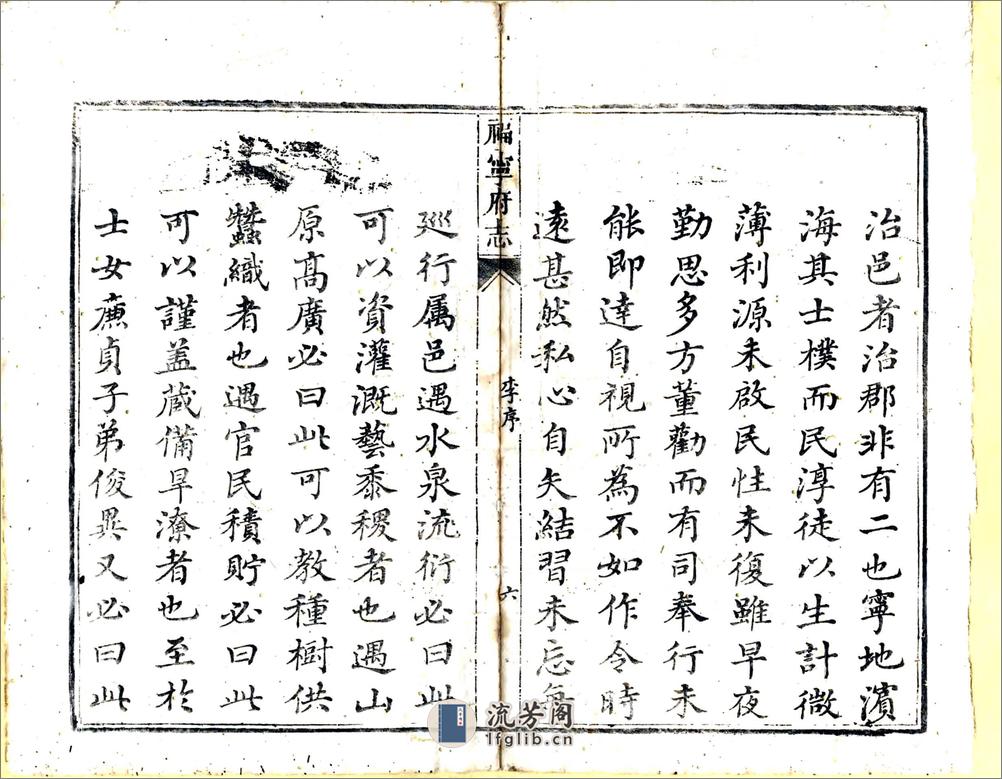 治邑者治郡非有二也寧地濱
海其士樸而民淳徒以生計微
薄利源未啟民性未復雖早夜
勤思多方董勸而有司奉行未
能即達自視所為不如作令時
遠甚然私心自矢結習未忘每
福寧府志
李序
六
廵行属邑遇水泉流衍必曰此
可以資灌溉藝黍稷者也遇山
原髙廣必曰此可以教種樹供
蠶織者也遇官民積貯必曰此
可以謹盖藏備旱潦者也至於
士女廉貞子弟俊異又必曰此
流芳阁
lfglib.cn